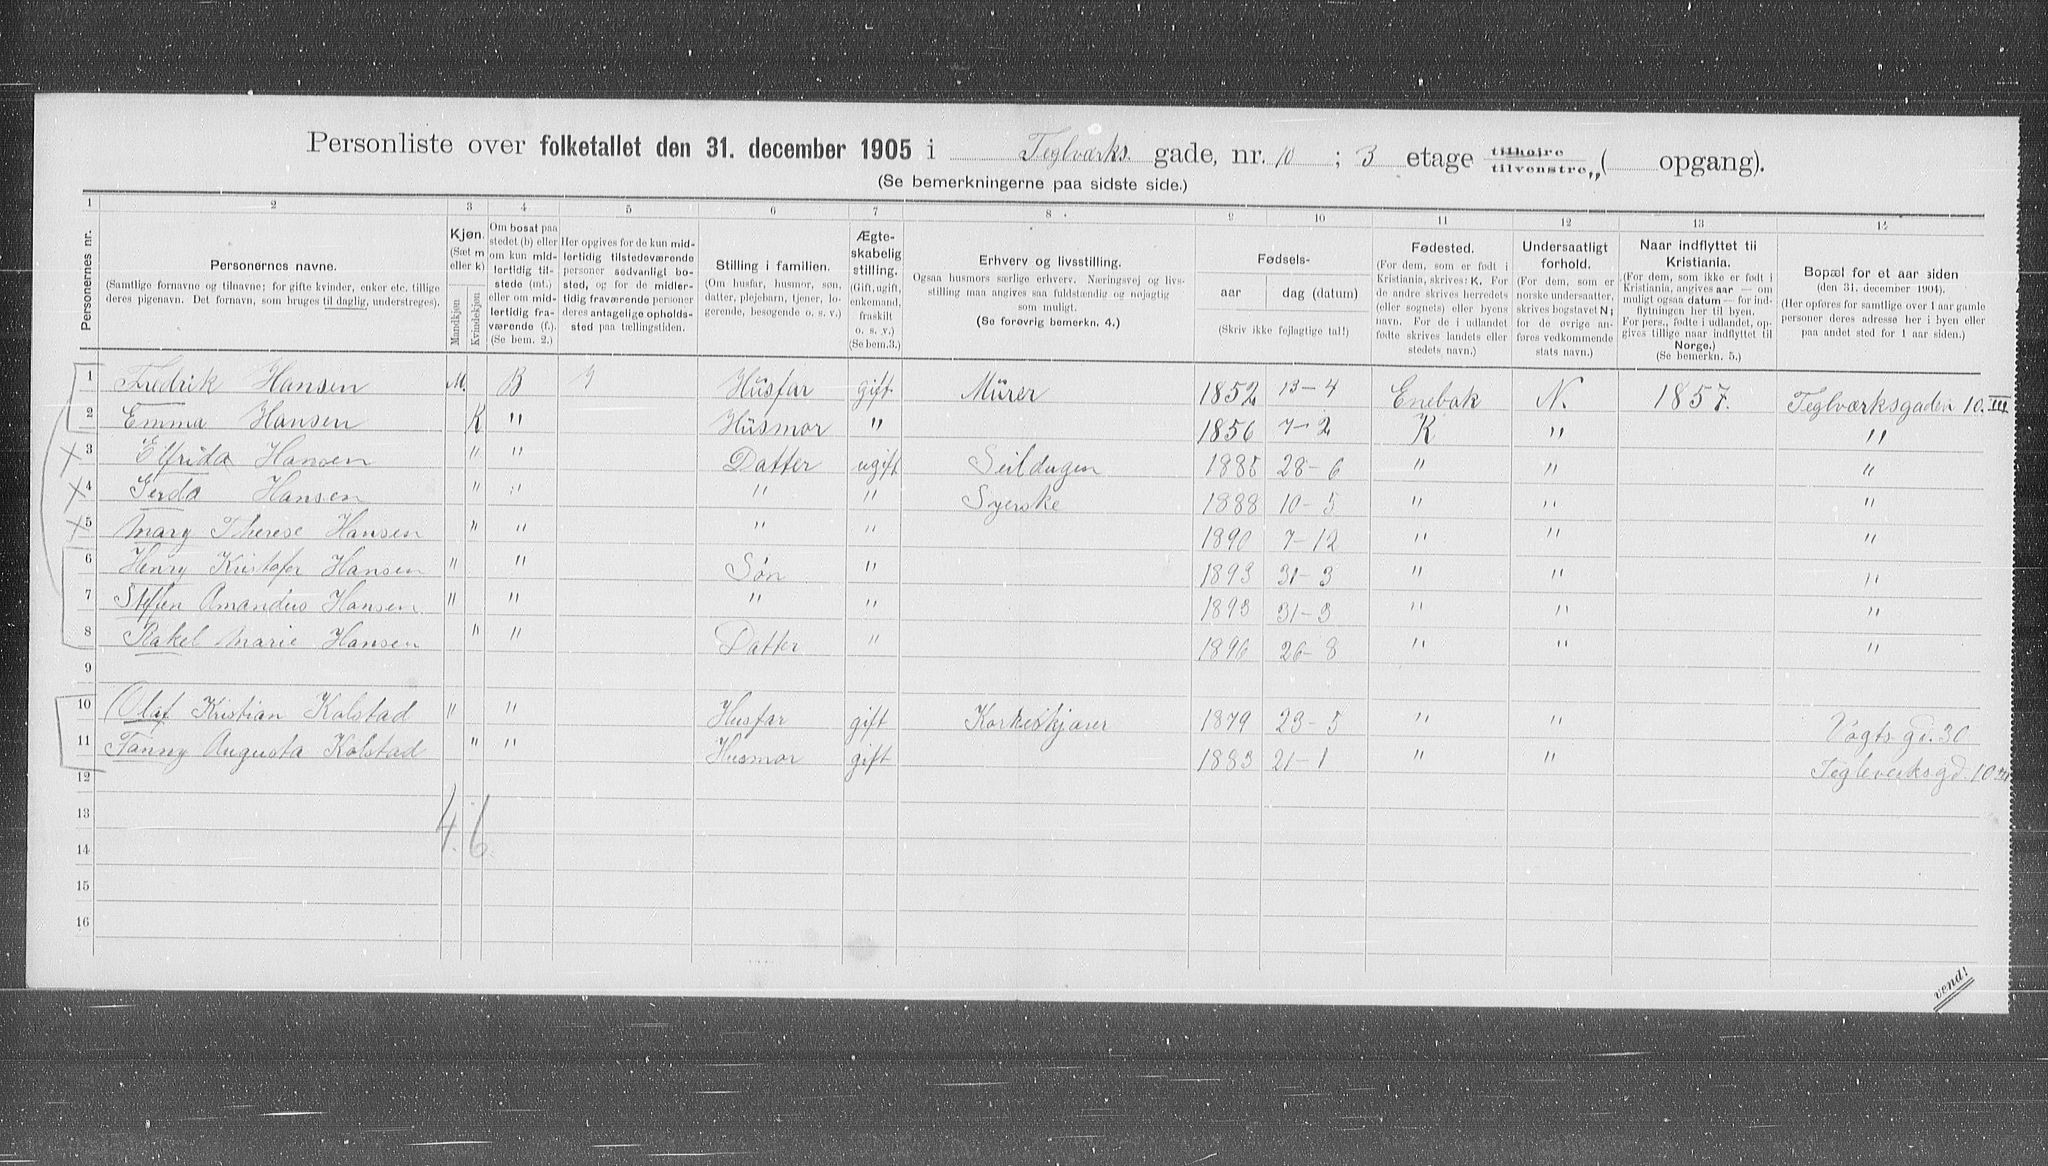 Personliste over folketallet den 31. december 1905 i Teglværks gade, nr. 10 ; 3 etage tilhøire tilvenstre „ ( opgang).
(Se bemerkningerne paa sidste side.)
1 2 3 4 5 6 7 8 9 10 11 12 13 14
Personernes nr.
Personernes navne.
(Samtlige fornavne og tilnavne; for gifte kvinder, enker etc. tillige deres pigenavn. Det fornavn, som bruges til daglig, understreges).
Kjøn.
(Sæt m eller k)
Mandkjøn.
Kvindekjøn.
Om bosat paa stedet (b) eller om kun midlertidig tilstede (mt.) eller om midlertidig fraværende (f.). (Se bem. 2.)
Her opgives for de kun midlertidig tilstedeværende personer sedvanligt bosted, og for de midlertidig fraværende personer deres antagelige opholdssted paa tællingstiden.
Stilling i familien.
(Om husfar, husmor, søn, datter, plejebarn, tjener, logerende, besøgende o. s. v.)
Ægteskabelig stilling.
(Gift, ugift, enkemand, fraskilt o. s. v.)
(Se bem. 3.)
Erhverv og livsstilling.
Ogsaa husmors særlige erhverv. Næringsvej og livsstilling maa angives saa fuldstændig og nøjagtig som muligt.
(Se forøvrig bemerkn. 4.)
Fødsels-
aar
dag (datum)
(Skriv ikke fejlagtige tal!)
Fødested.
(For dem, som er født i Kristiania, skrives: K. For de andre skrives herredets (eller sognets) eller byens navn. For de i udlandet fødte skrives landets eller stedets navn.)
Undersaatligt forhold.
(For dem, som er norske undersaatter, skrives bogstavet N; for de øvrige anføres vedkommende stats navn.)
Naar indflyttet til Kristiania.
(For dem, som ikke er født i Kristiania, angives aar — om muligt ogsaa datum — for indflytningen her til byen. For pers., fødte i udlandet, opgives tillige naar indflyttet til Norge.)
(Se bemerkn. 5.)
Bopæl for et aar siden
(den 31. december 1904).
(Her opføres for samtlige over 1 aar gamle personer deres adresse her i byen eller paa andet sted for 1 aar siden.)
1 Fredrik Hansen M. B Husfar gift Mürer 1852 13-4 Enebak N. 1857. Teglværksgaden 10. III
2 Emma Hansen K " Hüsmor " 1856 7-2 K " "
3 Elfrida Hansen " " Datter ugift Seildugen 1885 28-6 " " "
4 Gerda Hansen " " " " Syerske 1888 10-5 " " "
5 Mary Therese Hansen " " " " 1890 7-12 " " "
6 Henry Kristofer Hansen " " Søn " 1893 31-3 " " "
7 Steffen Amandus Hansen " " " " 1893 31-3 " " "
8 Rakel Marie Hansen " " Datter " 1896 26-8 " " "
9
10 Olaf Kristian Kolstad " " Husfar gift Korkeskjærer 1879 23-5 " " Vogts gd. 30
11 Fanny Augusta Kolstad " " Husmor gift 1883 21-1 " " Teglverksgd. 10 III
12
13 4. 6.
14
15
16
vend!